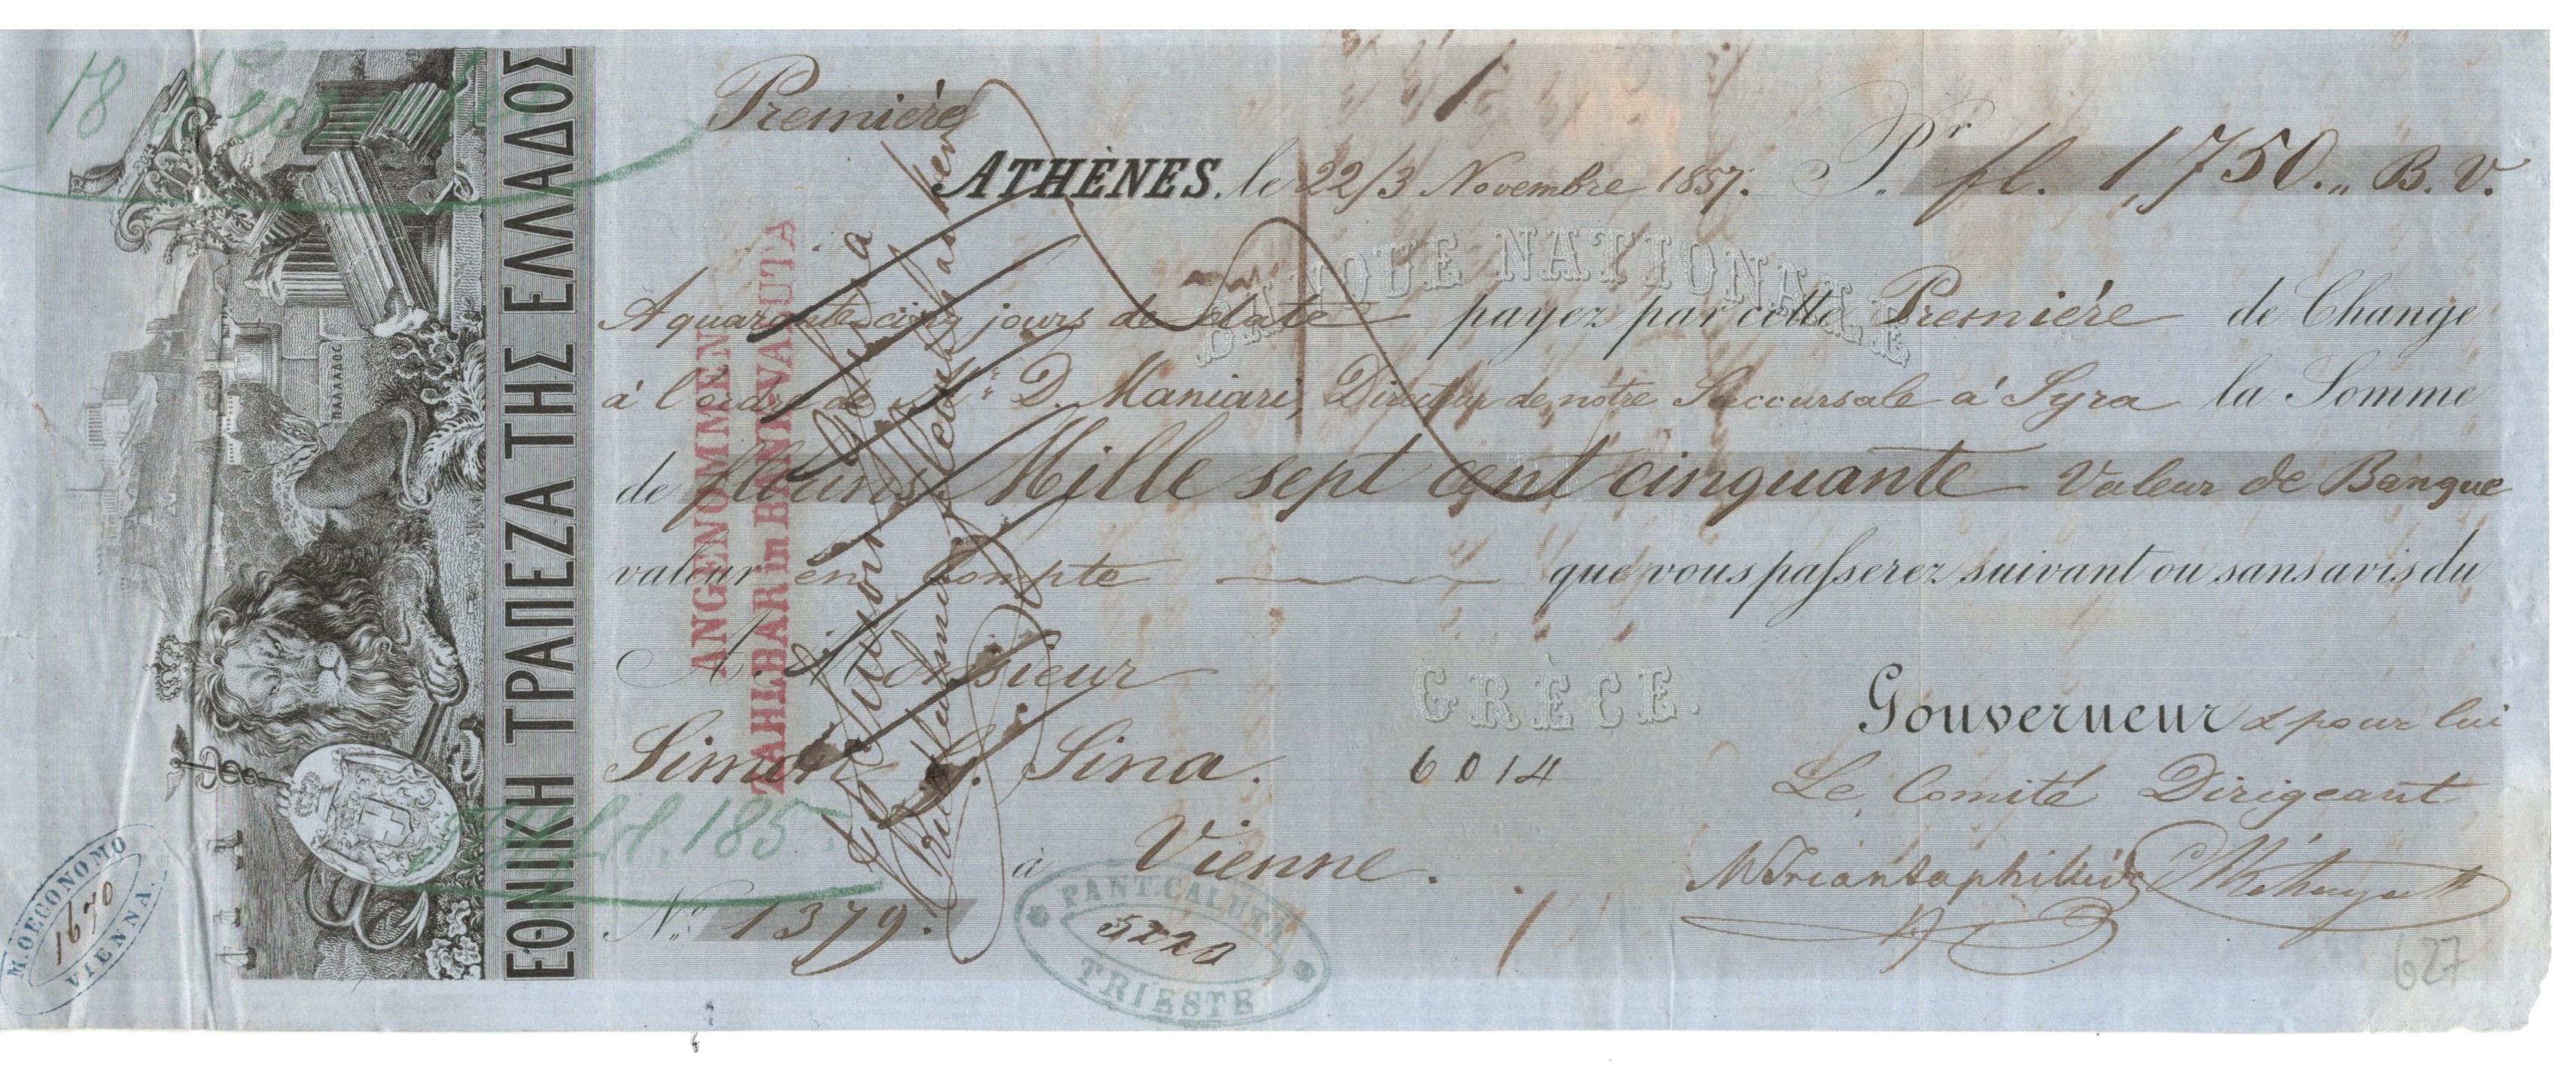 Première
ATHÈNES, le 22/3 Novembre 1857. Pr. fl. 1,750.,, B. V.
BANQUE NATIONALE
A quarante cinq jours de date payez par cette Première de Change
à l'ordre de Mr. D. Maniari, Directeur de notre Succursale à Syra la Somme
de florins Mille sept cent cinquante Valeur de Banque
valeur en Compte que vous passerez suivant ou sans avis du
A Monsieur
GRÈCE.
Gouverneur & pour lui
Simon G. Sina.
6014
Le Comité Dirigeant
à Vienne.
No. 1379.
ΕΘΝΙΚΗ ΤΡΑΠΕΖΑ ΤΗΣ ΕΛΛΑΔΟΣ
ΠΑΛΛΑΔΟΣ
ANGENOMMEN
ZAHLBAR in BANKVALUTA
18
185
M. OECONOMO
1670
VIENNA.
PANT. CALUTA
5220
TRIESTE
627